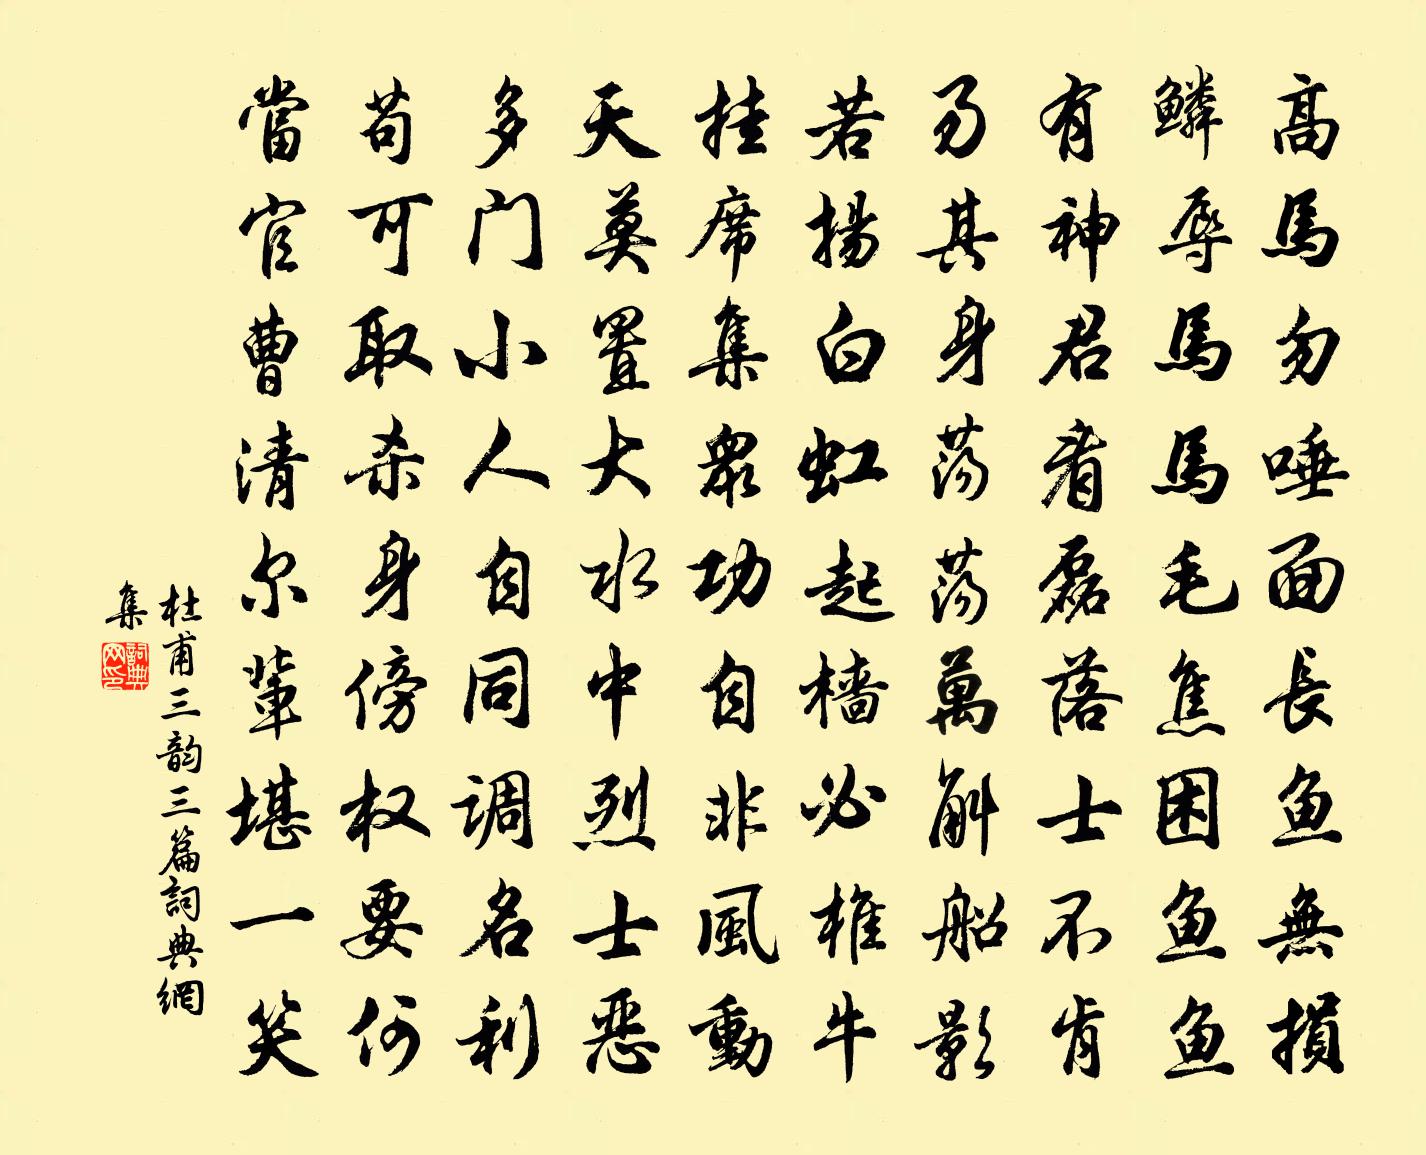 高馬勿唾面長鱼無損
鱗辱馬馬毛焦困鱼鱼
有神君看磊落士不肯
易其身荡荡萬斛船影
若揚白虹起檣必椎牛
挂席集衆功自非風動
天莫置大水中烈士惡
多门小人自同调名利
苟可取杀身傍权要何
當官曹清尔輩堪一笑
杜甫三韵三篇詞典網
集
詞典网印